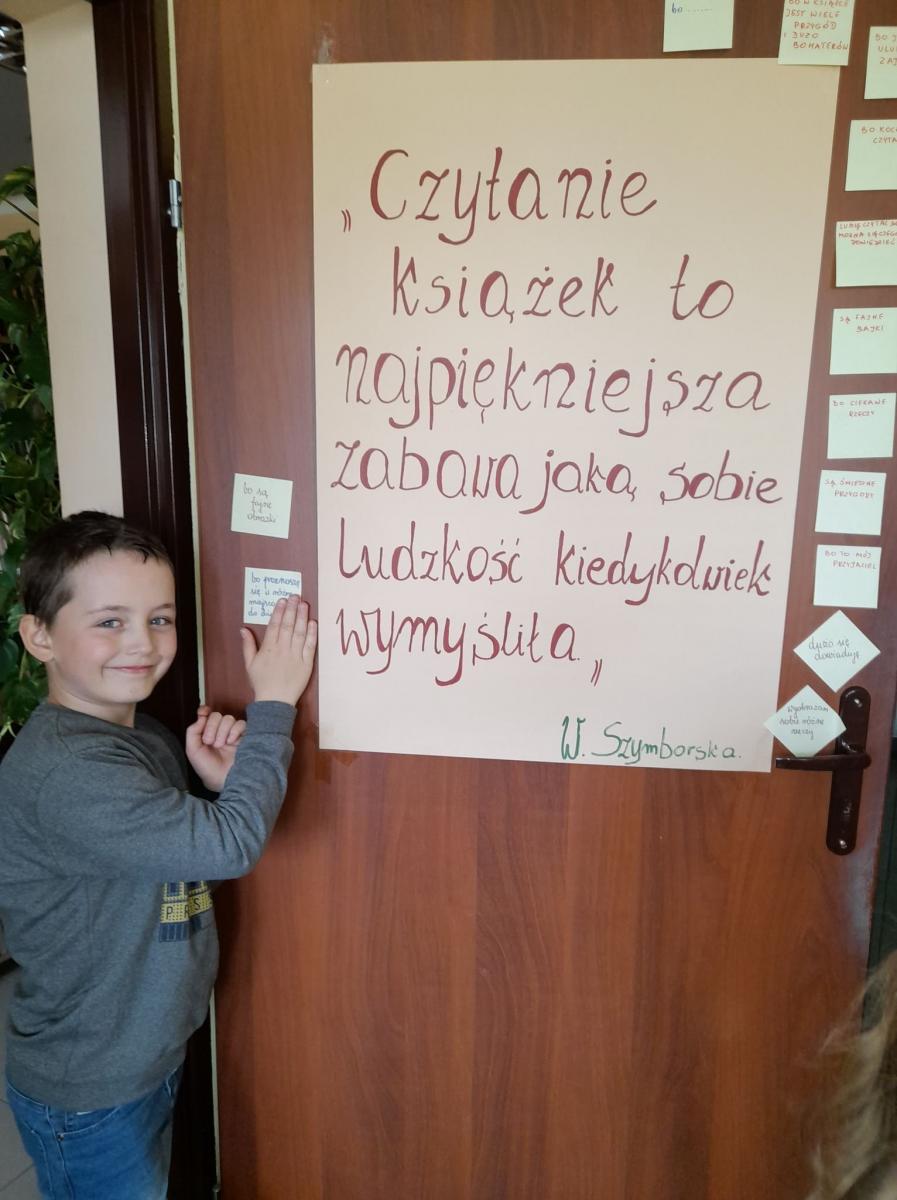 bo........
BO W KSIĄŻCE
JEST WIELE
PRZYGÓD
I DUŻO
BOHATERÓW
BO
„Czytanie
książek to
najpiękniejsza
zabawa jaką sobie
ludzkość kiedykolwiek
wymyśliła.”
W. Szymborska.
BO KOC
CZYTA
LUBIĘ CZYTAĆ BO
MOŻNA SIĘ CZEGOŚ
DOWIEDZIEĆ
SĄ FAJNE
BAJKI
BO CIEKAWE
RZECZY
SĄ ŚMIESZNE
PRZYGODY
BO TO MÓJ
PRZYJACIEL
dużo się
dowiaduję
wyobrażam
sobie różne
rzeczy
bo są
fajne
obrazki
bo przenoszę
się w różne
miejsca
PARIS